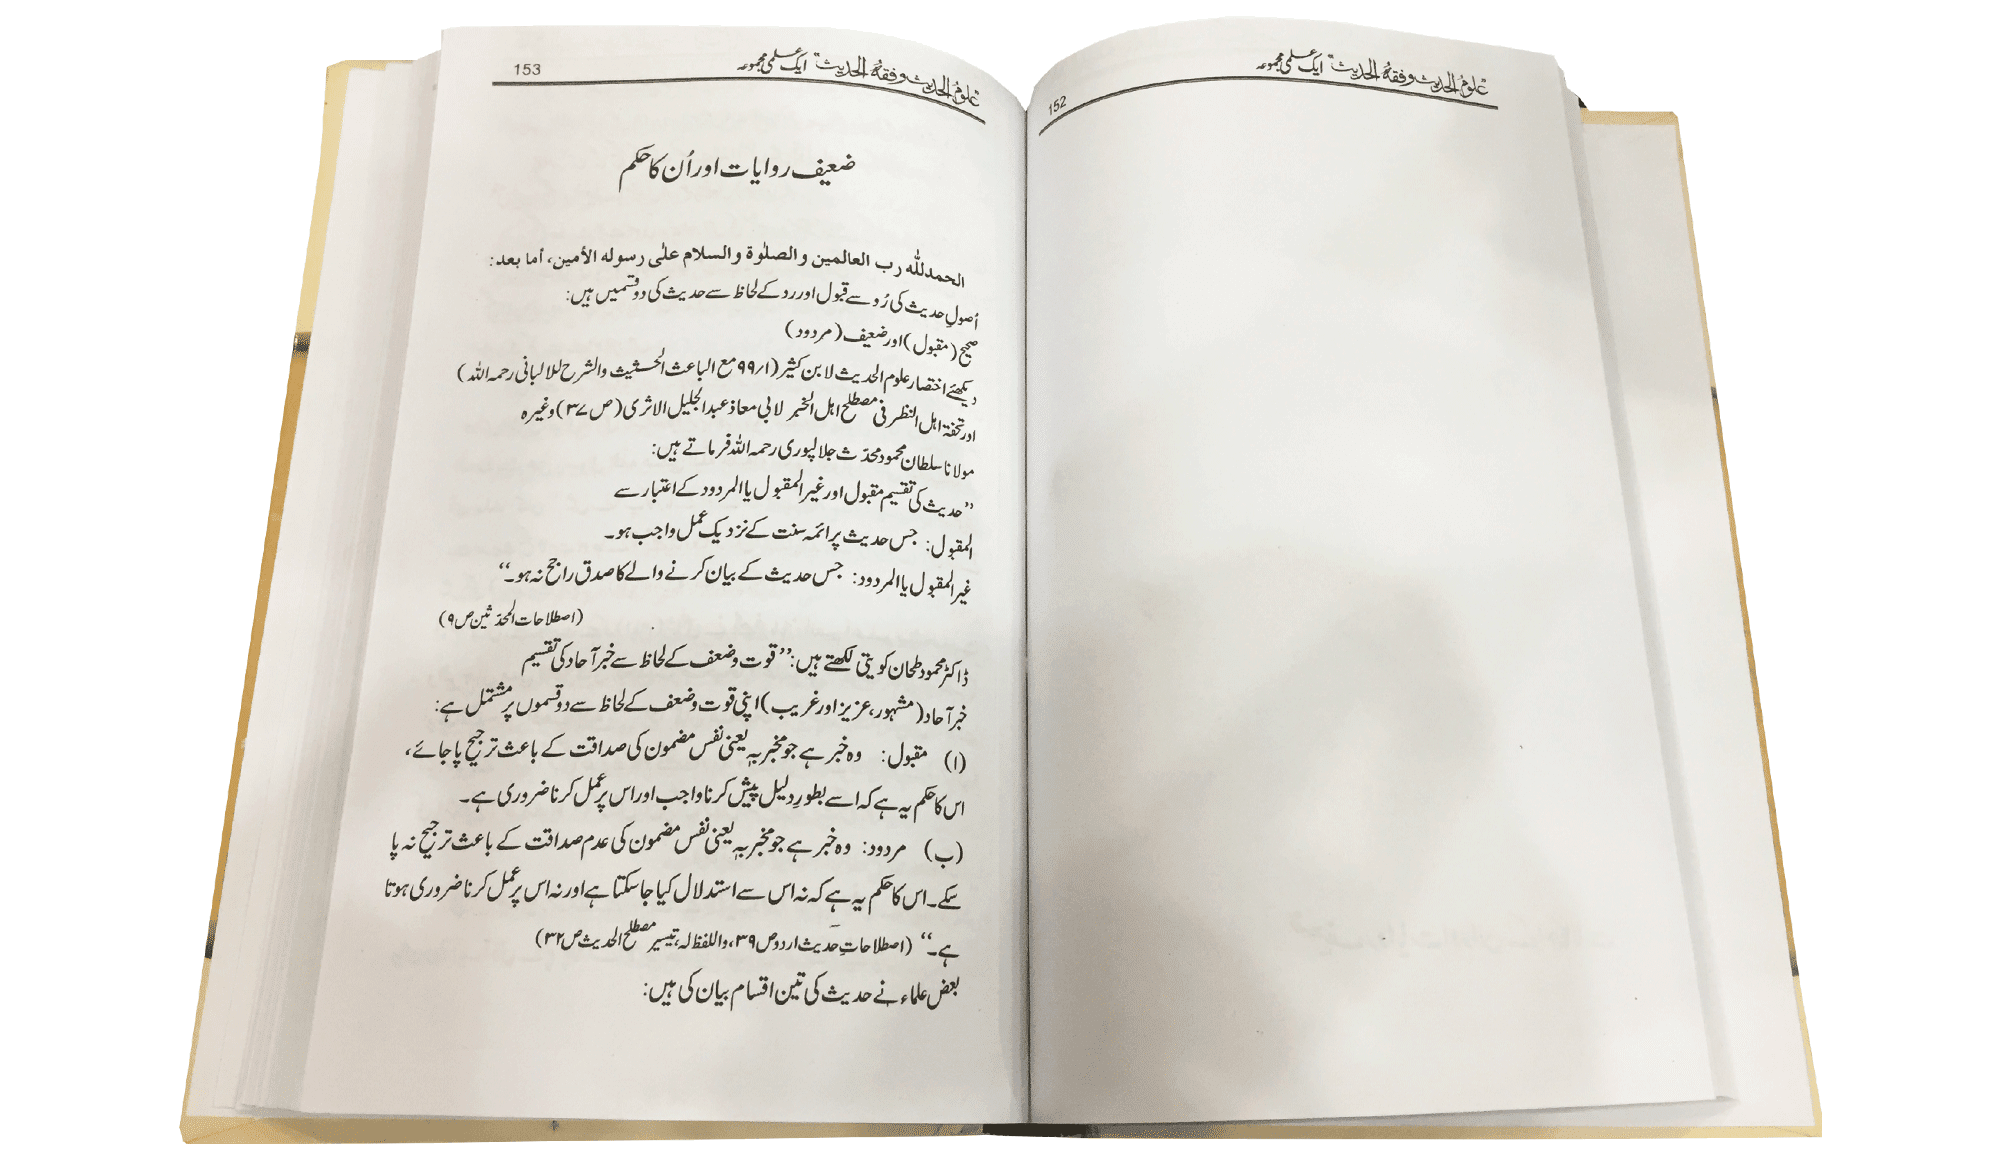 "علومُ الحدیث و فقہُ الحدیث" ایک علمی مجموعہ
152
"علومُ الحدیث و فقہُ الحدیث" ایک علمی مجموعہ
153
ضعیف روایات اور اُن کا حکم
الحمدللّٰه رب العالمین والصلوٰة والسلام علیٰ رسوله الأمین، أما بعد:
اُصولِ حدیث کی رُو سے قبول اور رد کے لحاظ سے حدیث کی دو قسمیں ہیں:
صحیح (مقبول) اور ضعیف (مردود)
دیکھئے اختصار علوم الحدیث لابن کثیر (۹۹/۱ مع الباعث الحثیث والشرح للالبانی رحمہ اللہ)
اور تحفۃ اہل النظر فی مصطلح اہل الخبر لابی معاذ عبدالجلیل الاثری (ص ۳۷) وغیرہ
مولانا سلطان محمود محدّث جلالپوری رحمہ اللہ فرماتے ہیں:
’’حدیث کی تقسیم مقبول اور غیر المقبول یا المردود کے اعتبار سے
المقبول: جس حدیث پر ائمہ سنت کے نزدیک عمل واجب ہو۔
غیر المقبول یا المردود: جس حدیث کے بیان کرنے والے کا صدق راجح نہ ہو۔‘‘
(اصطلاحات المحدّثین ص۹)
ڈاکٹر محمود طحان کویتی لکھتے ہیں: ’’قوت وضعف کے لحاظ سے خبر آحاد کی تقسیم
خبر آحاد (مشہور، عزیز اور غریب) اپنی قوت وضعف کے لحاظ سے دو قسموں پر مشتمل ہے:
(ا) مقبول: وہ خبر ہے جو مخبر بہٖ یعنی نفس مضمون کی صداقت کے باعث ترجیح پا جائے،
اس کا حکم یہ ہے کہ اسے بطورِ دلیل پیش کرنا واجب اور اس پر عمل کرنا ضروری ہے۔
(ب) مردود: وہ خبر ہے جو مخبر بہٖ یعنی نفس مضمون کی عدم صداقت کے باعث ترجیح نہ پا
سکے۔ اس کا حکم یہ ہے کہ نہ اس سے استدلال کیا جا سکتا ہے اور نہ اس پر عمل کرنا ضروری ہوتا
ہے۔‘‘ (اصطلاحاتِ حدیث اردو ص ۳۹، واللفظ لہ، تیسیر مصطلح الحدیث ص ۳۲)
بعض علماء نے حدیث کی تین اقسام بیان کی ہیں: